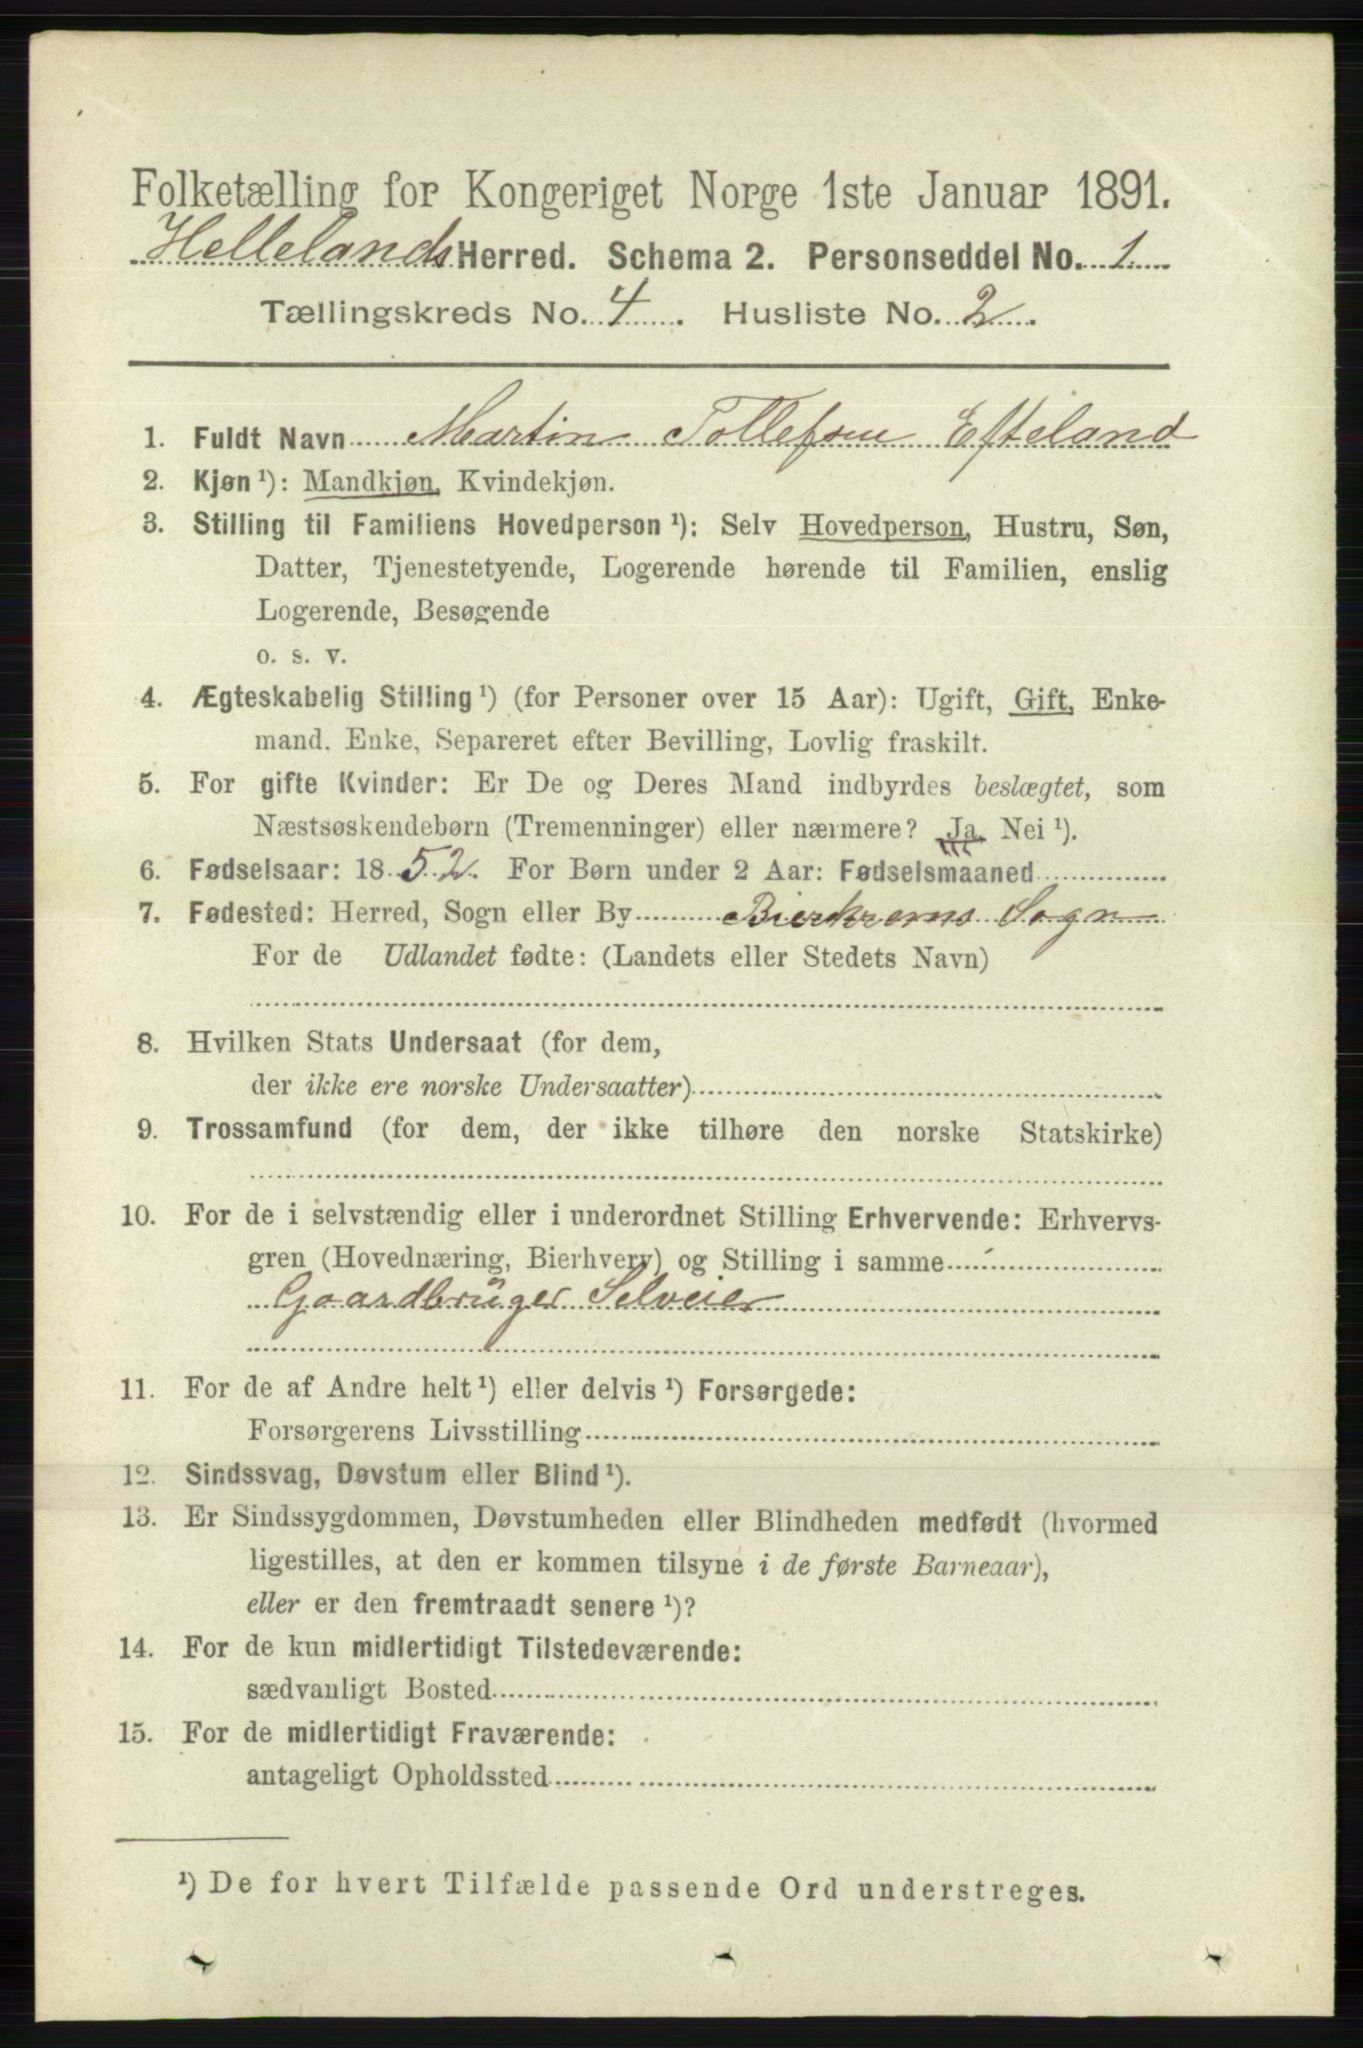 Folketælling for Kongeriget Norge 1ste Januar 1891.
Hellelands Herred. Schema 2. Personseddel No. 1
Tællingskreds No. 4. Husliste No. 2.
1. Fuldt Navn Martin Tollefsen Efteland
2. Kjøn ¹): Mandkjøn, Kvindekjøn.
3. Stilling til Familiens Hovedperson ¹): Selv Hovedperson, Hustru, Søn,
Datter, Tjenestetyende, Logerende hørende til Familien, enslig
Logerende, Besøgende
o. s. v.
4. Ægteskabelig Stilling ¹) (for Personer over 15 Aar): Ugift, Gift, Enke-
mand. Enke, Separeret efter Bevilling, Lovlig fraskilt.
5. For gifte Kvinder: Er De og Deres Mand indbyrdes beslægtet, som
Næstsøskendebørn (Tremenninger) eller nærmere? Ja, Nei ¹).
6. Fødselsaar: 1852. For Børn under 2 Aar: Fødselsmaaned
7. Fødested: Herred, Sogn eller By Bierkrems Sogn
For de Udlandet fødte: (Landets eller Stedets Navn)
8. Hvilken Stats Undersaat (for dem,
der ikke ere norske Undersaatter)
9. Trossamfund (for dem, der ikke tilhøre den norske Statskirke)
10. For de i selvstændig eller i underordnet Stilling Erhvervende: Erhvervs-
gren (Hovednæring, Bierhverv) og Stilling i samme
Gaardbrüger Selveier
11. For de af Andre helt ¹) eller delvis ¹) Forsørgede:
Forsørgerens Livsstilling
12. Sindssvag, Døvstum eller Blind ¹).
13. Er Sindssygdommen, Døvstumheden eller Blindheden medfødt (hvormed
ligestilles, at den er kommen tilsyne i de første Barneaar),
eller er den fremtraadt senere ¹)?
14. For de kun midlertidigt Tilstedeværende:
sædvanligt Bosted
15. For de midlertidigt Fraværende:
antageligt Opholdssted
¹) De for hvert Tilfælde passende Ord understreges.